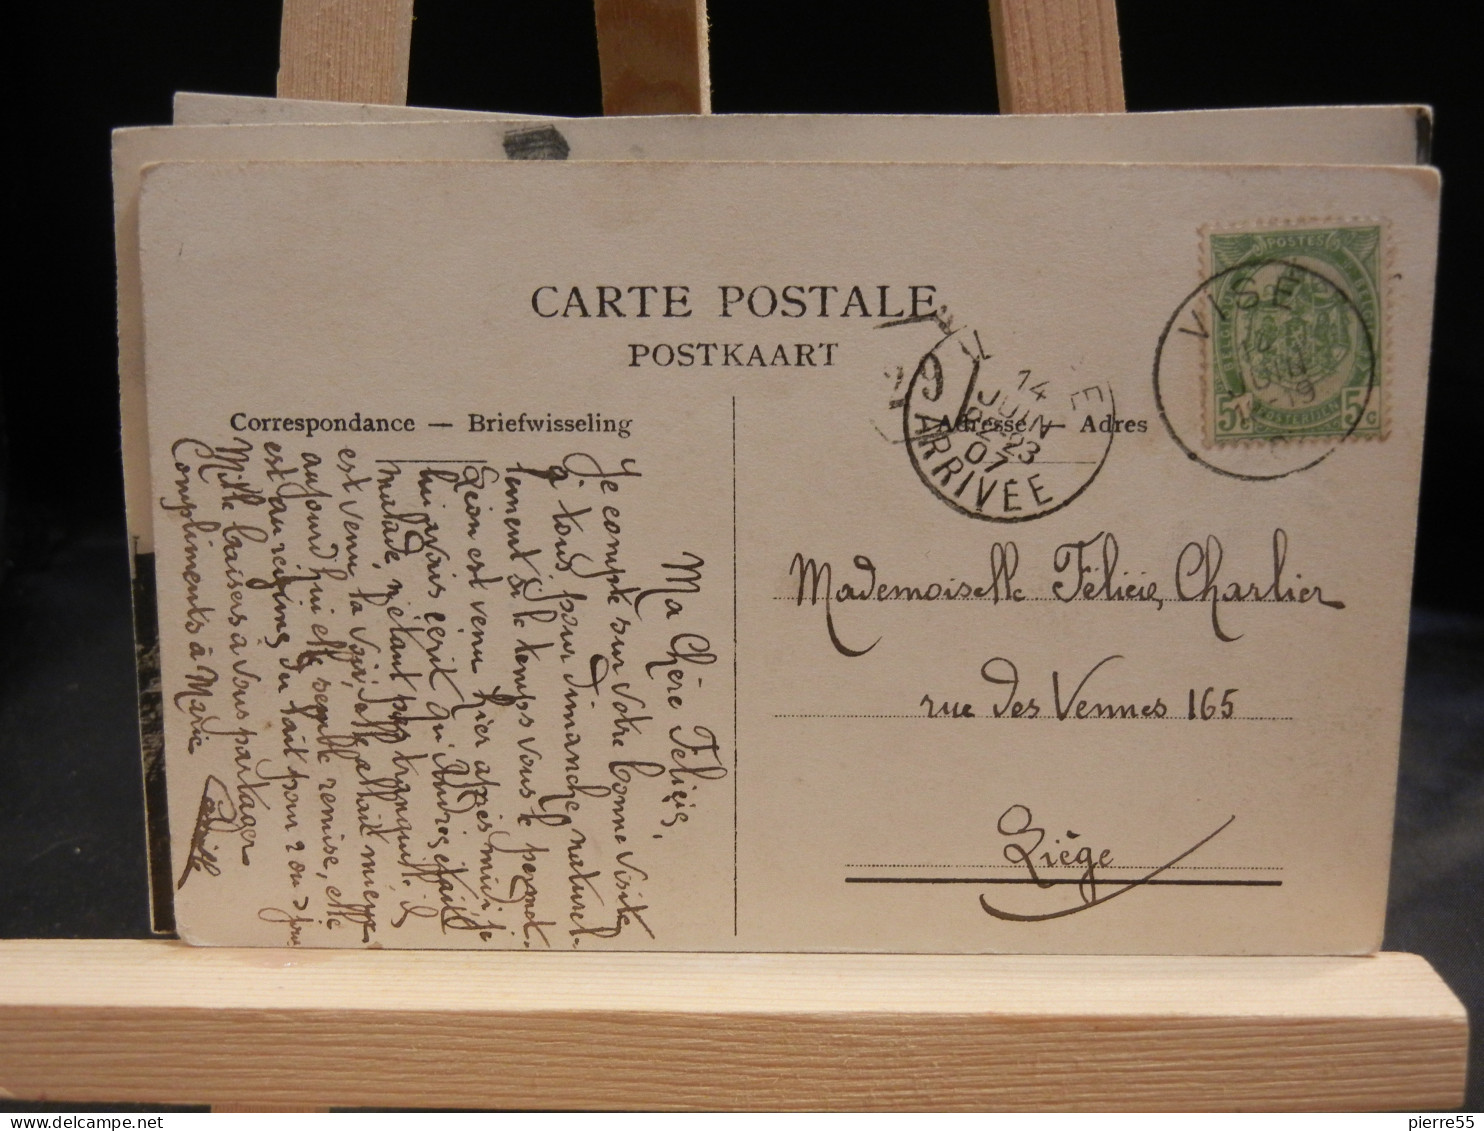 CARTE POSTALE
POSTKAART
Correspondance — Briefwisseling
Adresse — Adres
POSTES
VISÉ
14
JUIN
07
ARRIVÉE
Ma Chère Félicie,
Je compte sur votre bonne visite
à tous pour dimanche, naturel-
lement si le temps vous le permet.
Léon est venu hier après midi je
lui avais écrit qu'Andrée était
malade, n'étant pas tranquille il
est venu la voir, elle allait mieux
aujourd'hui elle semble remise, elle
est au régime du lait pour 2 ou 3 jours
Mille baisers à vous partager
Compliments à Marie
Mademoiselle Félicie Charlier
rue des Vennes 165
Liège
pierre55